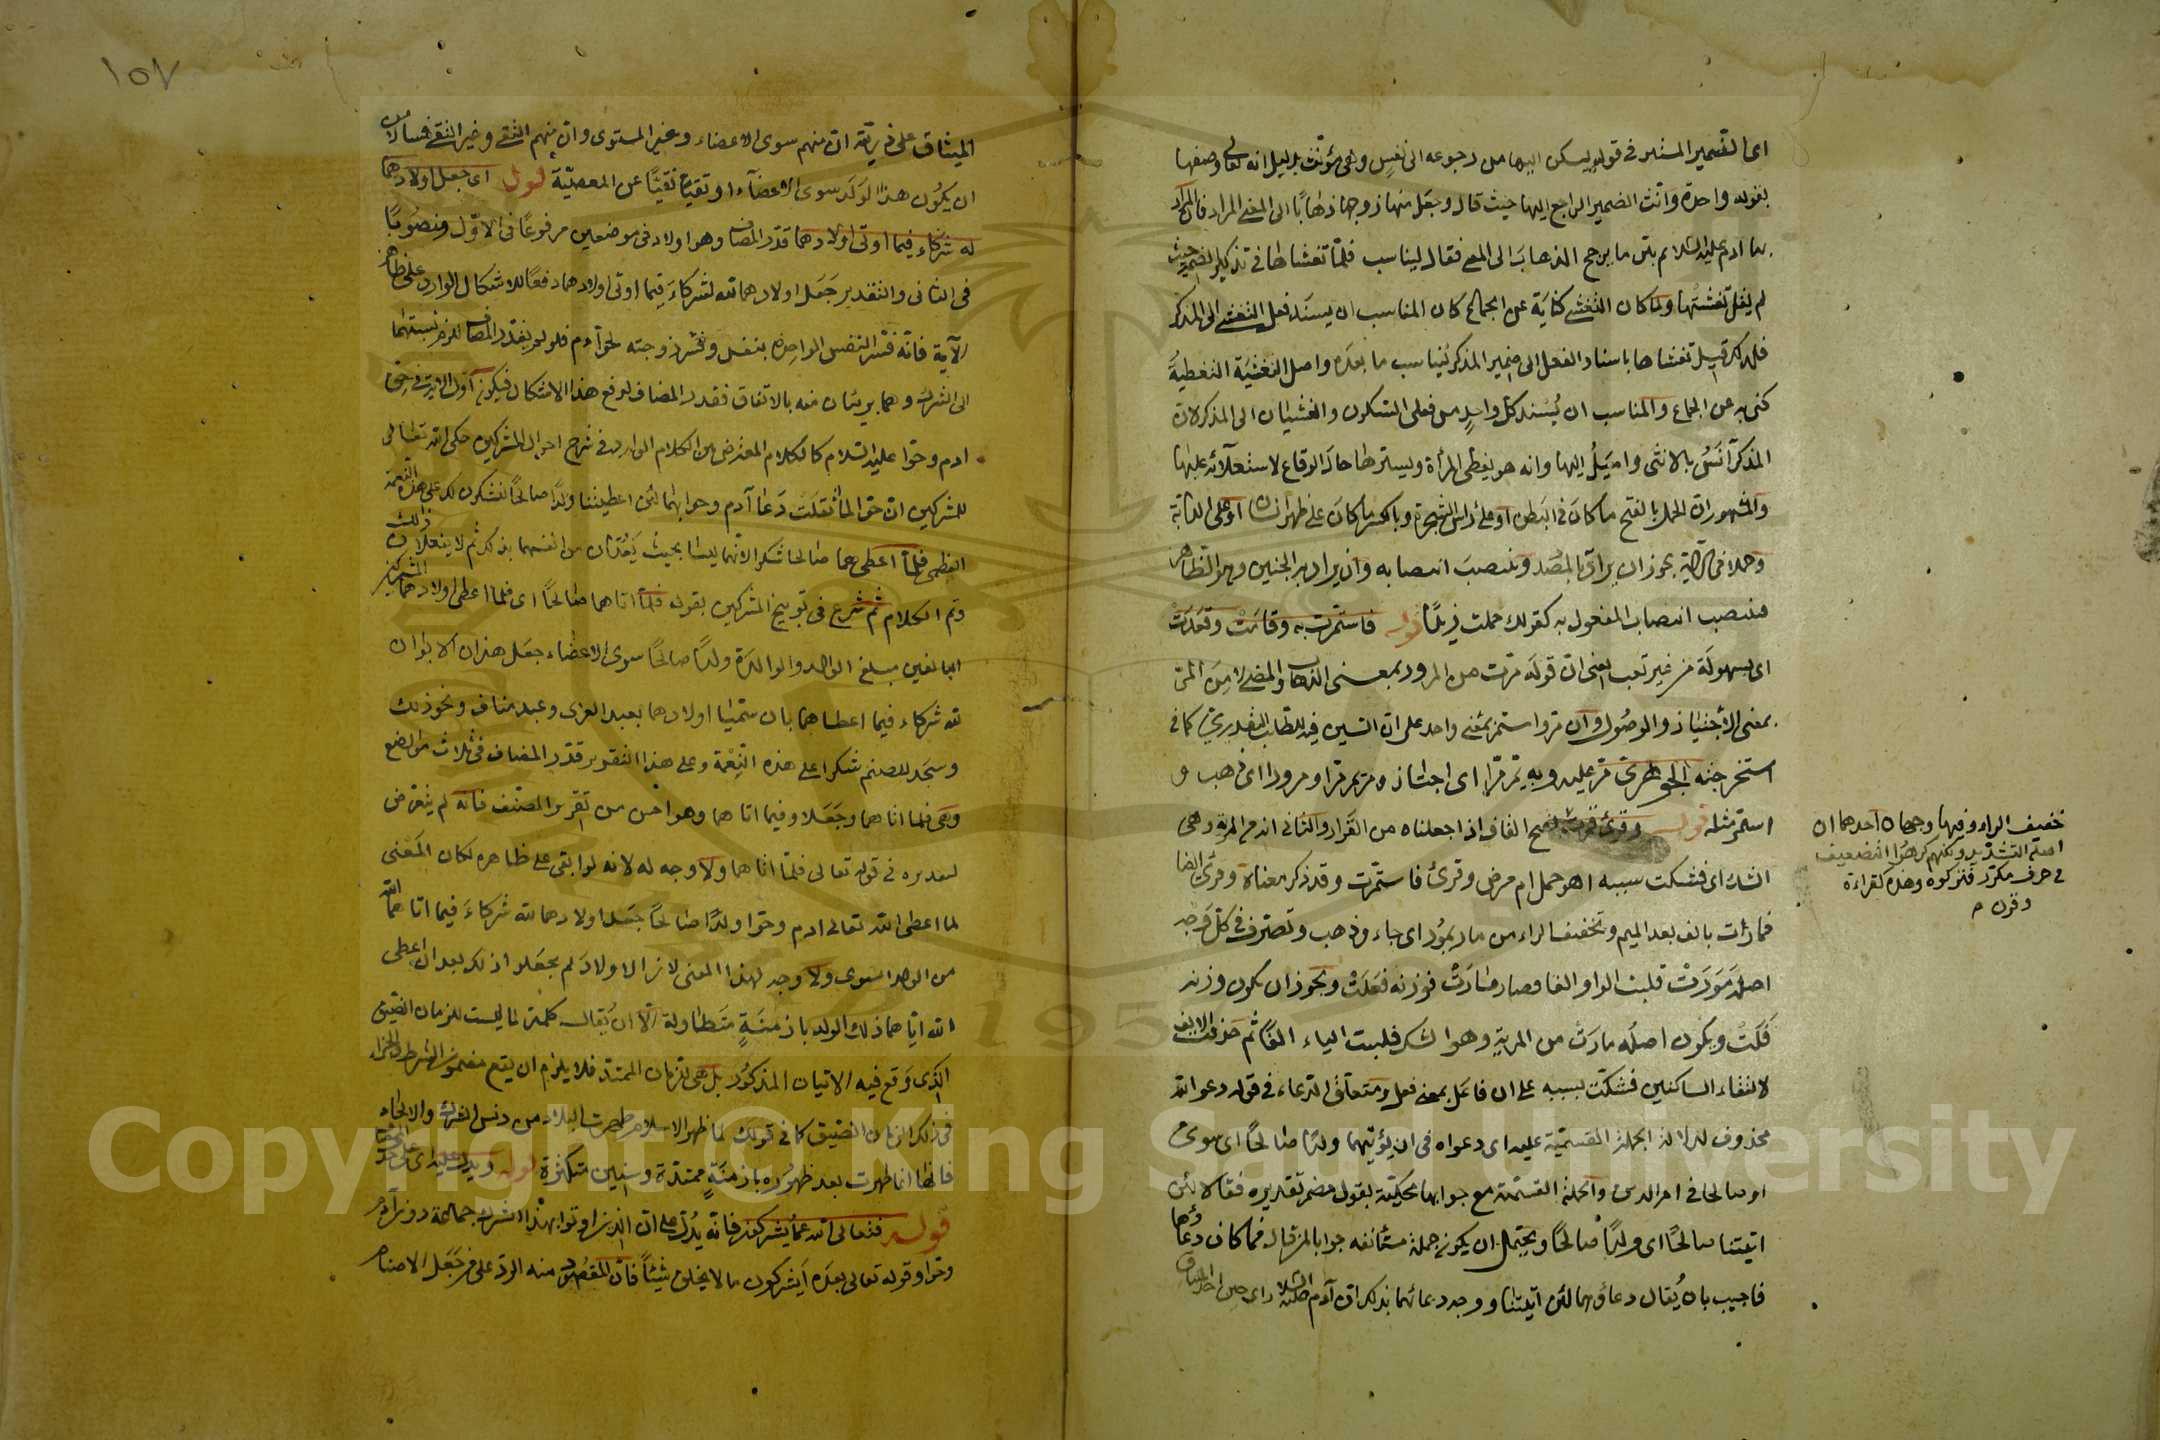 اى الضمير المستتر فى قوله ليسكن اليها من رجوعه الى نفس وهى مؤنث بدليل انه تعالى وصفها
بقوله واحدة وانث الضمير الراجع اليها حيث قال وجعل منها زوجها ذهابا الى المعنى المراد فان المراد
بها ادم عليه السلام بين ما يرجح الذهاب الى المعنى فقال ليناسب فلما تغشاها فى تذكير الضمير حيث
لم يقل تغشتها ولما كان التغشى كناية عن الجماع كان المناسب ان يسند فعل التغشى الى المذكر
فلذلك قيل تغشاها باسناد الفعل الى ضمير المذكر ليناسب ما بعده واصل التغشية التغطية
كنى به عن الجماع والمناسب ان يسند كل واحد من فعلى السكون والغشيان الى المذكر لان
المذكر آنس بالانثى واميل اليها وانه هو يغطى المرأة ويسترها حال الوقاع لاستعلائه عليها
والمشهور ان الحمل بالفتح ما كان فى البطن او على رأس الشجرة وبالكسر ما كان على ظهر انسان او على الدابة
وحملا فى الآية يجوز ان يراد به المصدر وينتصب انتصابه وان يراد به الجنين وهو الظاهر
فينصب انتصاب المفعول به كقولك حملت زيدا قوله فاستمرت به وقامت وقعدت
اى بسهولة من غير تعب يعنى ان قوله مرت من المرور بمعنى الذهاب والمضى لا من المر
بمعنى الاجتياز والوصول وان مر واستمر بمعنى واحد على ان السين فيه للطلب التقديرى كما فى
استخرجته الجوهرى مر عليه وبه يمر مرا اى اجتاز ومر يمر مرا ومرورا اى ذهب و
استمر مثله قوله وقرئ فمرت بفتح القاف اذا جعلناه من القرار والثانى انه من المرية وهى
الشك اى فشكت سببه اهو حمل ام مرض وقرئ فاستمرت وقد ذكر معناه وقرئ ايضا
فمارت بالف بعد الميم وتخفيف الراء من مار يمور اى جاء وذهب وتصرف فى كل وجه
اصله مورت قلبت الواو الفا فصار مارت فوزنه فعلت ويجوز ان يكون وزنه
فلت ويكون اصله مارت من المرية وهو الشك فقلبت الياء الفا ثم حذفت الالف
لالتقاء الساكنين فشكت بسببه على ان فاعل بمعنى فعل ومتعلق الدعاء فى قوله دعوا الله
محذوف لدلالة الجملة القسمية عليه اى دعواه فى ان يؤتيهما ولدا صالحا اى سوى
او صالحا فى امر الدين والجملة القسمية مع جوابها محكية بقول مضمر تقديره فقالا لئن
اتيتنا صالحا اى ولدا صالحا ويحتمل ان يكون جملة مستأنفه جوابا لمن قال فما كان دعاؤهما
فاجيب بان يقال دعاؤهما لئن اتيتنا ووجه دعائهما بذلك ان آدم عليه السلام راى حين اخذ الميثاق
تخفيف الراء وفيها وجهان احدهما ان
اصله التشديد ولكنهم كرهوا التضعيف
فى حرف مكرر فتركوه وهذه كقراءة
وقرن
١٥٧
الميثاق على ذريته ان منهم سوى الاعضاء وغير المستوى وان منهم التقى وغير التقى فسالا من
ان يكون هذا الولد سوى الاعضاء او تقيا نقيا عن المعصية قوله اى جعل اولادهما
له شركاء فيما اوتى اولادهما قدر المضاف وهو اولاد فى موضعين مرفوعا فى الاول ومنصوبا
فى الثانى والتقدير جعل اولادهما لله شركاء فيما اوتى اولادهما دفعا للاشكال الوارد على ظاهر
الآية فانه فسر النفس الواحدة بنفس وفسر زوجته لحواء فلو لم يقدر المضاف للزم نسبتهما
الى الشرك وهما بريئان منه بالاتفاق فقدر المضاف لدفع هذا الاشكال فيكون اول الآية فى حق
ادم وحوا عليهما السلام كالكلام المعترض بين الكلام الوارد فى شرح احوال المشركين حكى الله تعالى
للمشركين ان حوا لما اثقلت دعا آدم وحوا بهما لئن اعطيتنا ولدا صالحا لنشكرن لك على هذه النعمة
العظمى فلما اعطى هما صالحا شكرا لانهما ليسا بحيث يعدان من انفسهما بذلك ثم لا يفعلان ذلك
وتم الكلام ثم شرع فى توبيخ المشركين بقوله فلما اتاهما صالحا اى فلما اعطى اولادهما المشركين
البالغين مبلغ الوالد والوالدة ولدا صالحا سوى الاعضاء جعل هذان الابوان
لله شركاء فيما اعطاهما بان سميا اولادهما بعبد العزى وعبد مناف ونحو ذلك
وسجد للصنم شكرا على هذه النعمة وعلى هذا التقرير قدر المضاف فى ثلاث مواضع
وهى فلما اتاهما وجعلا وفيما اتاهما وهو احسن من تقرير المصنف فانه لم يتعرض
لتقديره فى قوله تعالى فلما اتاهما ولا وجه له لانه لو ابقى على ظاهره لكان المعنى
لما اعطى الله تعالى ادم وحوا ولدا صالحا جعل اولادهما لله شركاء فيما اتاهما الله
من الولد السوى ولا وجه لهذا المعنى لان الاولاد لم يجعلوا ذلك بعد ان اعطى
الله اياهما ذلك الولد بازمنة متطاولة الا ان يقال كلمة لما ليست للزمان الضيق
الذى وقع فيه الاتيان المذكور بل هى للزمان الممتد فلا يلزم ان يقع مضمون الشرط والجزاء
فى ذلك الزمان الضيق كما فى قولك لما ظهر الاسلام طهرت البلاد من دنس الشرك والالحاد
فانها انما طهرت بعد ظهوره بازمنة ممتدة وسنين متكثرة قوله ويدل عليه اى على حذف المضاف
قوله فتعالى الله عما يشركون فانه يدل على ان الذين اوتوا بهذا الشرك جماعة دون آدم
وحوا وقوله تعالى بعده أيشركون ما لا يخلق شيئا فان المقصود منه الرد على من جعل الاصنام
Copyright © King Saud University
1957